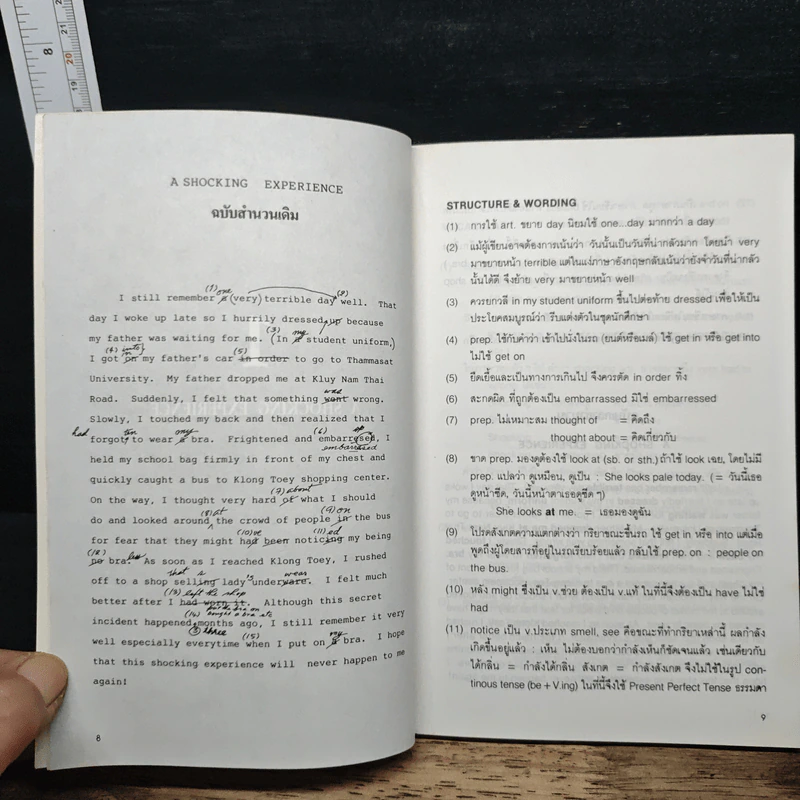 A SHOCKING EXPERIENCE
ฉบับสำนวนเดิม
(1) one (2)
I still remember a (very) terrible day well. That
day I woke up late so I hurrily dressed up because
(3) my
my father was waiting for me. (In a student uniform,)
(4) into (5)
I got on my father's car in order to go to Thammasat
University. My father dropped me at Kluy Nam Thai
was
Road. Suddenly, I felt that something went wrong.
Slowly, I touched my back and then realized that I
had ten my (6) up
forgot to wear a bra. Frightened and embarresed, I
embarrassed
held my school bag firmly in front of my chest and
quickly caught a bus to Klong Toey shopping center.
(7) about
On the way, I thought very hard of what I should
(8) at (9) on
do and looked around the crowd of people in the bus
(10) ve (11) ed
for fear that they might had been noticing my being
(12) less
no bra. As soon as I reached Klong Toey, I rushed
that s wear
off to a shop selling lady's underware. I felt much
(13) left the shop
better after I had worn it. Although this secret
(14)
incident happened months ago, I still remember it very
three (15) my
well especially everytime when I put on a bra. I hope
that this shocking experience will never happen to me
again!
8
STRUCTURE & WORDING
(1) การใช้ art. ขยาย day นิยมใช้ one...day มากกว่า a day
(2) แม้ผู้เขียนอาจต้องการเน้นว่า วันนั้นเป็นวันที่น่ากลัวมาก โดยนำ very
มาขยายหน้า terrible แต่ในแง่ภาษาอังกฤษกลับเน้นว่ายังจำวันที่น่ากลัว
นั้นได้ดี จึงย้าย very มาขยายหน้า well
(3) ควรยกวลี in my student uniform ขึ้นไปต่อท้าย dressed เพื่อให้เป็น
ประโยคสมบูรณ์ว่า รีบแต่งตัวในชุดนักศึกษา
(4) prep. ใช้กับคำว่า เข้าไปนั่งในรถ (ยนต์หรือเมล์) ใช้ get in หรือ get into
ไม่ใช้ get on
(5) ยืดเยื้อและเป็นทางการเกินไป จึงควรตัด in order ทิ้ง
(6) สะกดผิด ที่ถูกต้องเป็น embarrassed มิใช่ embarressed
(7) prep. ไม่เหมาะสม thought of = คิดถึง
thought about = คิดเกี่ยวกับ
(8) ขาด prep. มองดูต้องใช้ look at (sb. or sth.) ถ้าใช้ look เฉย, โดยไม่มี
prep. แปลว่า ดูเหมือน, ดูเป็น : She looks pale today. (= วันนี้เธอ
ดูหน้าซีด, วันนี้หน้าตาเธอดูซีด ๆ)
She looks at me. = เธอมองดูฉัน
(9) โปรดสังเกตความแตกต่างว่า กริยาขณะขึ้นรถ ใช้ get in หรือ into แต่เมื่อ
พูดถึงผู้โดยสารที่อยู่ในรถเรียบร้อยแล้ว กลับใช้ prep. on : people on
the bus.
(10) หลัง might ซึ่งเป็น v.ช่วย ต้องเป็น v.แท้ ในที่นี้จึงต้องเป็น have ไม่ใช่
had
(11) notice เป็น v.ประเภท smell, see คือขณะที่ทำกริยาเหล่านี้ ผลกำลัง
เกิดขึ้นอยู่แล้ว : เห็น ไม่ต้องบอกว่ากำลังเห็นก็ชัดเจนแล้ว เช่นเดียวกับ
ได้กลิ่น = กำลังได้กลิ่น สังเกต = กำลังสังเกต จึงไม่ใช้ในรูป con-
tinous tense (be + V.ing) ในที่นี้จึงใช้ Present Perfect Tense ธรรมดา
9
8
21
20
19